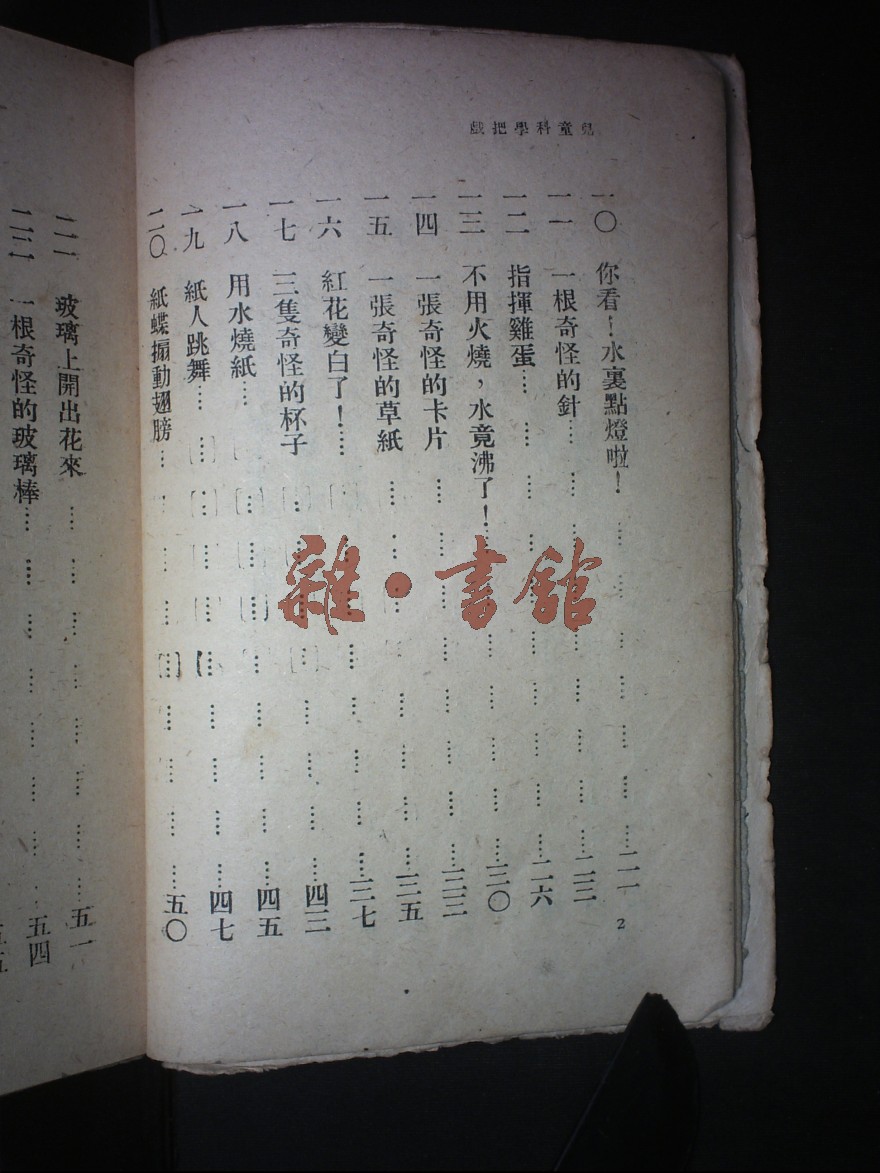 兒童科學把戲
一〇 你看！水裏點燈啦！…………二一
一一 一根奇怪的針…………二三
一二 指揮雞蛋…………二六
一三 不用火燒，水竟沸了！…………三〇
一四 一張奇怪的卡片…………三三
一五 一張奇怪的草紙…………三五
一六 紅花變白了！…………三七
一七 三隻奇怪的杯子…………四三
一八 用水燒紙…………四五
一九 紙人跳舞…………四七
二〇 紙蝶搧動翅膀…………五〇
2
二一 玻璃上開出花來…………五一
二二 一根奇怪的玻璃棒…………五四
雜·書館